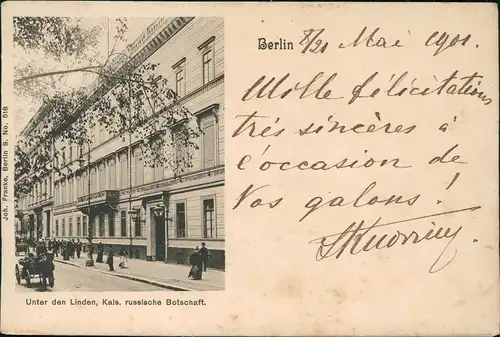 Joh. Franke, Berlin S. No. 518
Berlin 8/21 Mai 1901.
Mille félicitations
très sincères à
l'occasion de
Vos galons!
Unter den Linden, Kais. russische Botschaft.